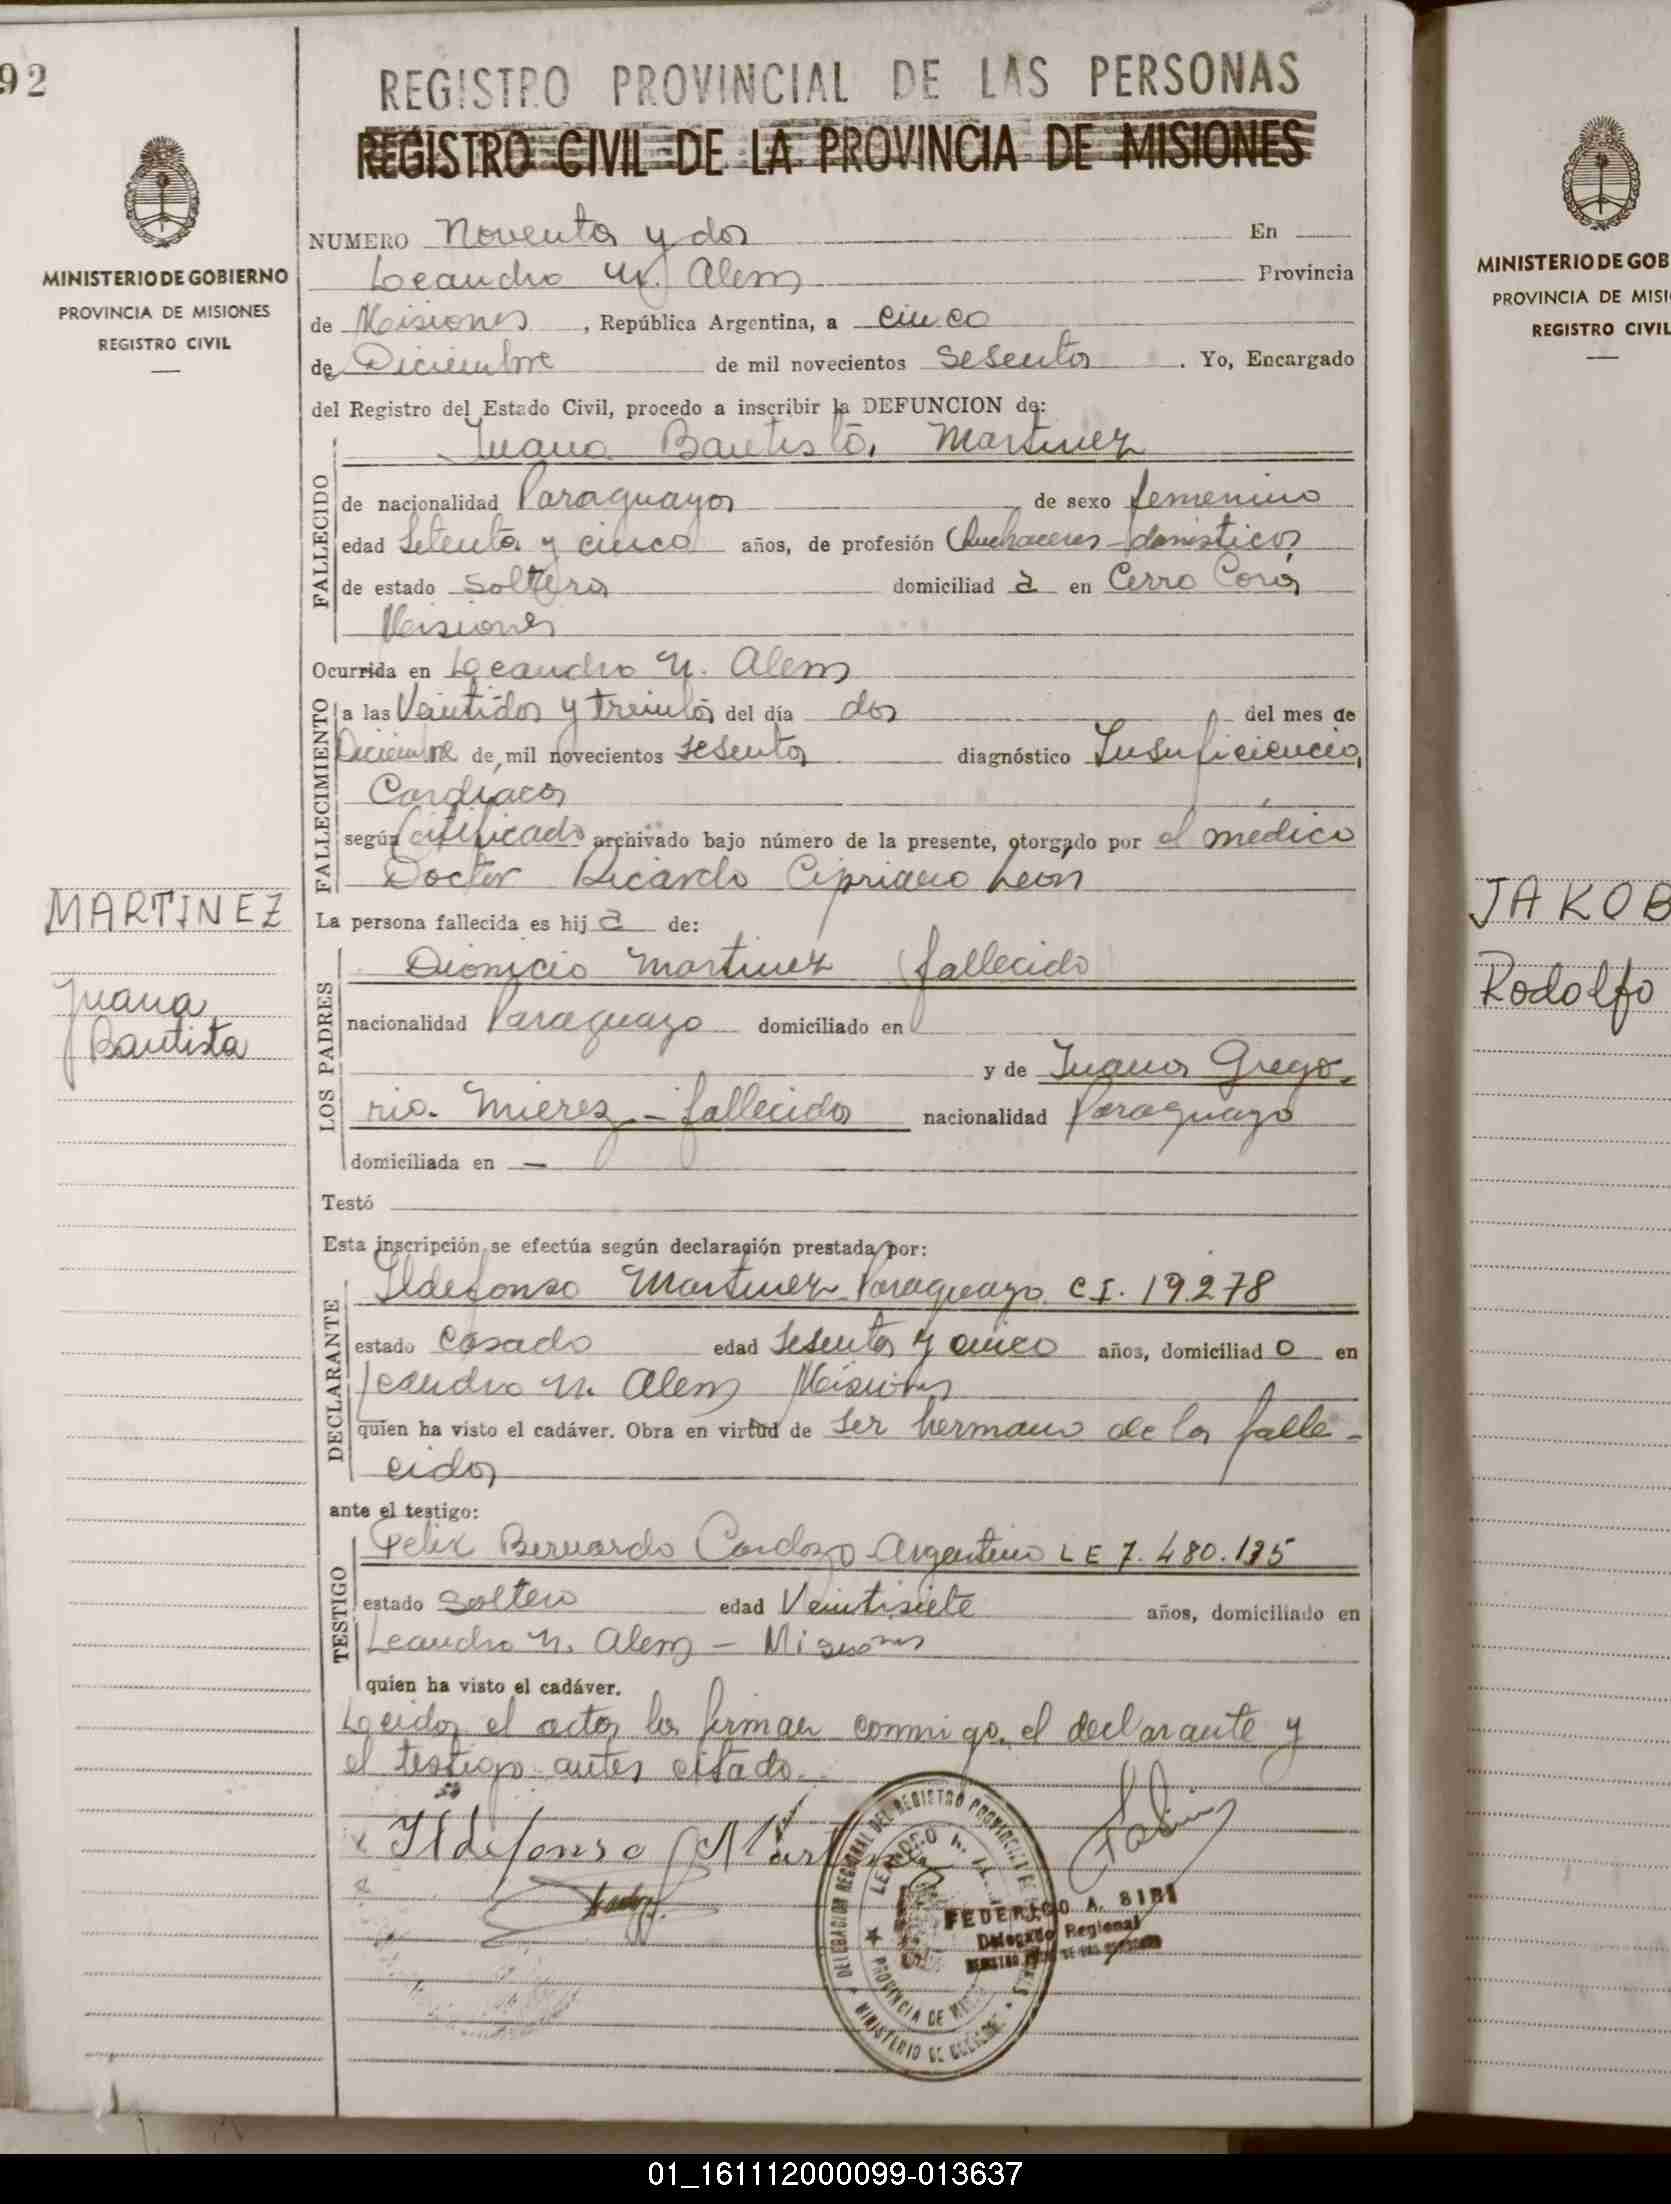 92
REGISTRO PROVINCIAL DE LAS PERSONAS
REGISTRO CIVIL DE LA PROVINCIA DE MISIONES
MINISTERIO DE GOBIERNO
PROVINCIA DE MISIONES
REGISTRO CIVIL
NUMERO Noventa y dos En
Leandro N. Alem Provincia
de Misiones, República Argentina, a cinco
de Diciembre de mil novecientos sesenta. Yo, Encargado
del Registro del Estado Civil, procedo a inscribir la DEFUNCION de:
Juana Bautista Martinez
FALLECIDO
de nacionalidad Paraguaya de sexo femenino
edad Setenta y cinco años, de profesión Quehaceres domésticos
de estado soltera domiciliad a en Cerro Corá
Misiones
Ocurrida en Leandro N. Alem
FALLECIMIENTO
a las Veintidos y treinta del día dos del mes de
Diciembre de mil novecientos sesenta diagnóstico Insuficiencia
Cardiaca
según Certificado archivado bajo número de la presente, otorgado por el médico
Doctor Ricardo Cipriano León
MARTINEZ
Juana
Bautista
La persona fallecida es hij a de:
LOS PADRES
Dionicio Martinez (fallecido
nacionalidad Paraguayo domiciliado en
y de Juana Grego-
ria Mierez - fallecida nacionalidad Paraguaya
domiciliada en —
Testó
Esta inscripción se efectúa según declaración prestada por:
DECLARANTE
Ildefonso Martinez Paraguayo C.I. 19.278
estado Casado edad Sesenta y cinco años, domiciliad o en
Leandro N. Alem Misiones
quien ha visto el cadáver. Obra en virtud de ser hermano de la falle-
cida
ante el testigo:
TESTIGO
Felix Bernardo Cardozo Argentino LE 7.480.135
estado soltero edad Veintisiete años, domiciliado en
Leandro N. Alem - Misiones
quien ha visto el cadáver.
Leida el acta la firman conmigo, el declarante y
el testigo antes citado.
Ildefonso Martinez
DELEGACION REGIONAL DEL REGISTRO PROVINCIAL DE LAS
LEANDRO N. ALEM
PROVINCIA DE MISIONES
MINISTERIO DE GOBIERNO
FEDERICO A. SIBI
Delegado Regional
REGISTRO PROV. DE LAS PERSONAS
MINISTERIO DE GOB
PROVINCIA DE MISI
REGISTRO CIVIL
JAKOB
Rodolfo
01_161112000099-013637